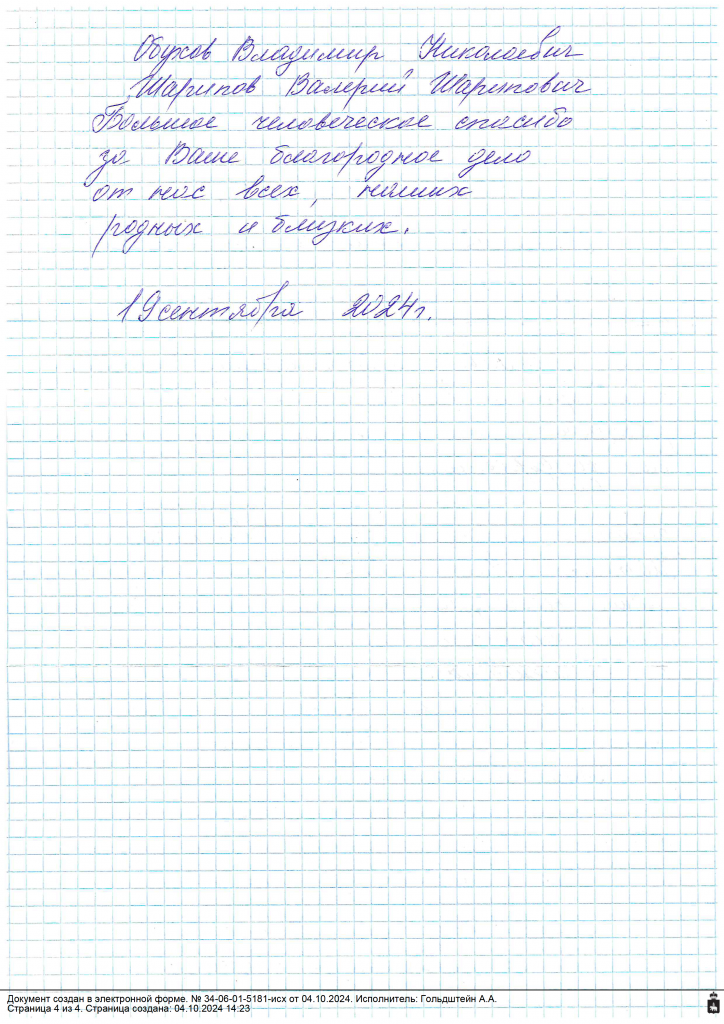 Обухов Владимир Николаевич
Шарипов Валерий Шарипович
Большое человеческое спасибо
за Ваше благородное дело
от нас всех, наших
родных и близких.
19 сентября 2024г.
Документ создан в электронной форме. № 34-06-01-5181-исх от 04.10.2024. Исполнитель: Гольдштейн А.А.
Страница 4 из 4. Страница создана: 04.10.2024 14:23